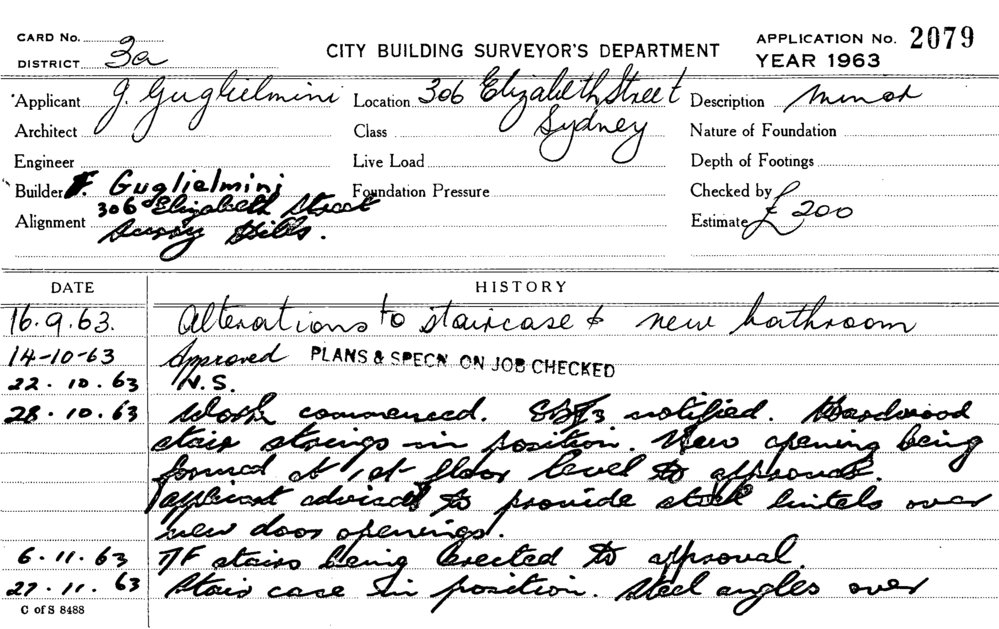 CARD No. APPLICATION No. 2079
DISTRICT 3a CITY BUILDING SURVEYOR'S DEPARTMENT YEAR 1963
Applicant J. Guglielmini Location 306 Elizabeth Street Description Minor
Architect Class Sydney Nature of Foundation
Engineer Live Load Depth of Footings
Builder F. Guglielmini Foundation Pressure Checked by
306 Elizabeth Street
Alignment Surry Hills. Estimate £200
DATE HISTORY
16.9.63. Alterations to staircase & new bathroom
14-10-63 Approved PLANS & SPECN ON JOB CHECKED
22.10.63 N.S.
28.10.63 Work commenced. notified. Hardwood
stair strings in position. New opening being
formed at 1st floor level to approval.
Applicant advised to provide steel lintels over
new door openings.
6.11.63 T/F stairs being erected to approval.
27.11.63 Stair case in position. Steel angles over
C of S 8488